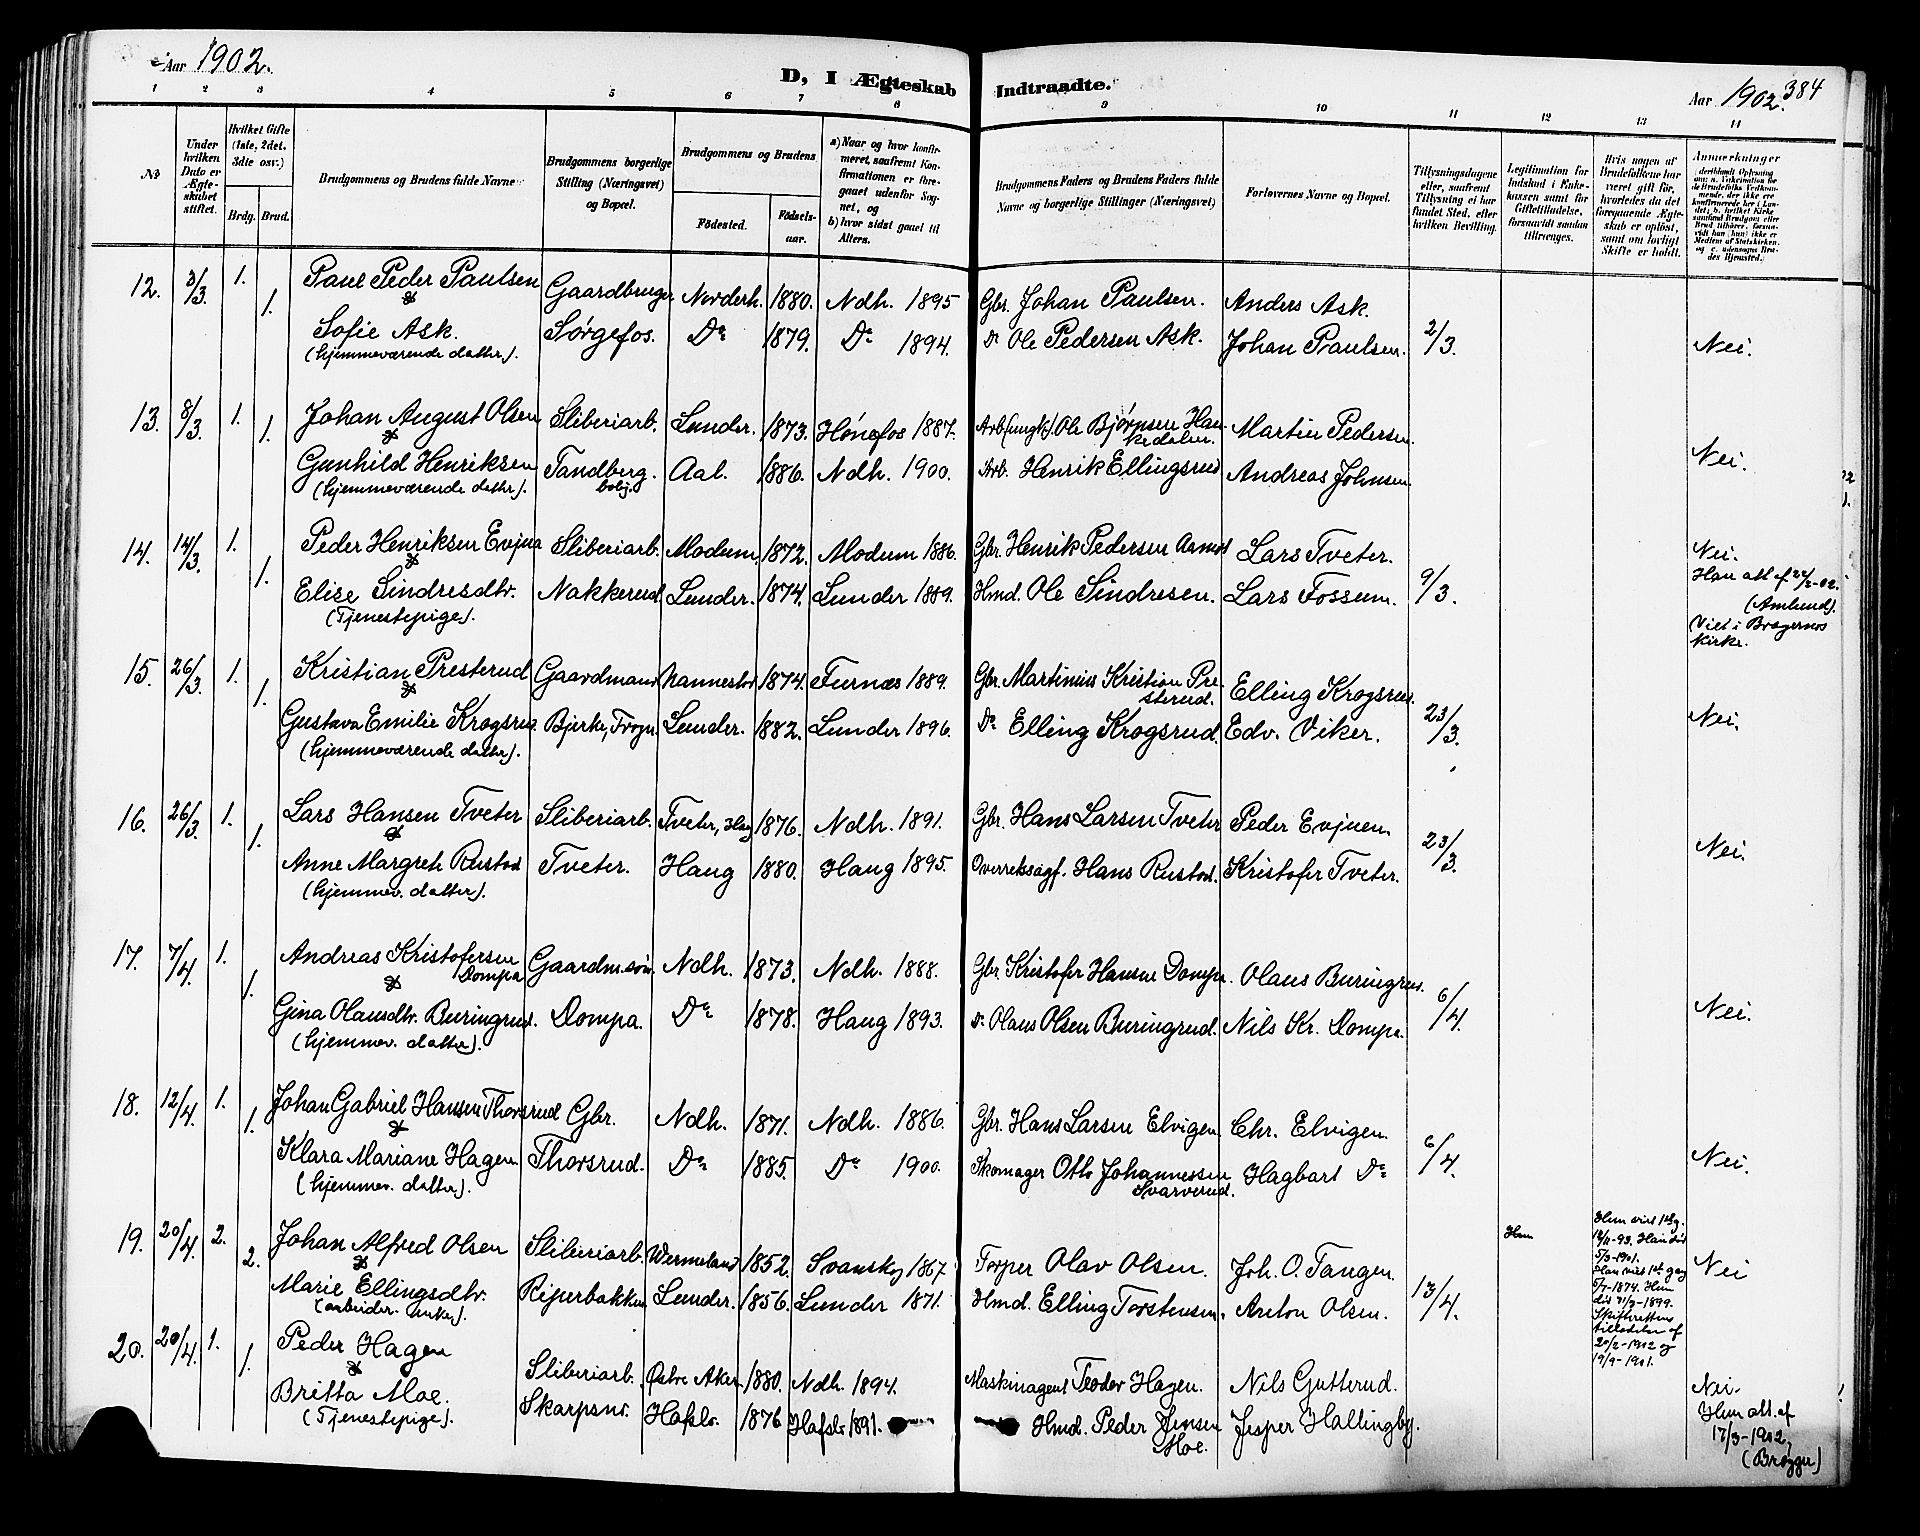 Aar 1902.
D, I Ægteskab Indtraadte.
Aar 1902. 384
1 2 3 4 5 6 7 8 9 10 11 12 13 14
No
Under hvilken Dato er Ægteskabet stiftet.
Hvilket Gifte (1ste, 2det, 3die osv.)
Brdg. Brud.
Brudgommens og Brudens fulde Navne
Brudgommens borgerlige Stilling (Næringsvei) og Bopæl.
Brudgommens og Brudens
Fødested. Fødselsaar.
a) Naar og hvor konfirmeret, saafremt Konfirmationen er foregaaet udenfor Sognet, og
b) hvor sidst gaaet til Alters.
Brudgommens Faders og Brudens Faders fulde Navne og borgerlige Stillinger (Næringsvei)
Forlovernes Navne og Bopæl.
Tillysningsdagene eller, saafremt Tillysning ei har fundet Sted, efter hvilken Bevilling.
Legitimation for Indskud i Enkekassen samt for Giftetilladelse, forsaavidt saadan tiltrænges.
Hvis nogen af Brudefolkene har været gift før, hvorledes da det foregaaende Ægteskab er opløst, samt om lovligt Skifte er holdt.
Anmærkninger
12. 3/3. 1. Paul Peder Paulsen Gaardbruger Norderh. 1880. Ndh. 1895 Gbr. Johan Paulsen. Anders Ask.
& 1.
Sofie Ask. Sørgefos. Do 1879. Do 1894. Do Ole Pedersen Ask. Johan Paulsen. 2/3. Nei.
(hjemmeværende datter).
13. 8/3. 1. Johan August Olsen Sliberiarb. Lunder. 1873. Hønefos 1887. Arb. (ungk). Ole Bjørnsen Hankedalen. Martin Pedersen.
& 1.
Gunhild Henriksen Tandberg bolig. Aal. 1886. Ndh. 1900. Arb. Henrik Ellingsrud Andreas Johnsen. Nei.
(hjemmeværende datter).
14. 14/3. 1. Peder Henriksen Evjua Sliberiarb. Modum. 1872. Modum 1886. Gbr. Henrik Pedersen Aamot Lars Tveter. Nei.
& 1.
Elise Sindresdtr. Nakkerud. Lunder. 1874. Lunder 1889. Hmd. Ole Sindresen. Lars Fossum. 9/3. Han att. af 22/2-02.
(Tjenestepige). (Amlund).
Viet i Bragernes Kirke.
15. 26/3. 1. Kristian Presterud Gaardmand Nannestad 1874. Furnæs 1889. Gbr. Martinius Kristian Presterud. Elling Krogsrud.
& 1.
Gustava Emilie Krogsrud Bjerke, Frogn. Lunder. 1882. Lunder 1896. Do Elling Krogsrud. Edv. Viker. 23/3. Nei.
(hjemmeværende datter).
16. 26/3. 1. Lars Hansen Tveter Sliberiarb. Tveter, Haug 1876. Ndh. 1891. Gbr. Hans Larsen Tveter Peder Evjuen.
& 1.
Anne Margrete Rustad Tveter. Haug 1880. Haug 1895. Overretssagf. Hans Rustad. Kristofer Tveter. 23/3. Nei.
(hjemmev. datter).
17. 7/4. 1. Andreas Kristofersen Dompa Gaardm.søn Ndh. 1873. Ndh. 1888. Gbr. Kristofer Hansen Dompa. Olaus Buringrud.
& 1.
Gina Olausdtr. Buringrud. Dompa. Do 1878. Haug 1893. Do Olaus Olsen Buringrud. Nils Kr. Dompa. 6/4. Nei.
(hjemmev. datter).
18. 12/4. 1. Johan Gabriel Hansen Thorsrud Gbr. Ndh. 1871. Ndh. 1886. Gbr. Hans Larsen Elvigen. Chr. Elvigen.
& 1.
Klara Mariane Hagen. Thorsrud. Do 1885. Do 1900. Skomager Otto Johannessen Svarverud. Hagbart Do 6/4. Nei.
(hjemmev. datter).
19. 20/4. 2. Johan Alfred Olsen Sliberiarb. Wermeland 1852. Svansky 1867 Torper Olav Olsen. Joh. O. Tangen. Hun Nei
& 2.
Marie Ellingsdtr. Riperbakken Lunder. 1856. Lunder 1871. Hmd. Elling Torstensen. Anton Olsen. 13/4.
(arbeider enke).
Hun viet 1ste g. 12/11-93. Han død 5/3-1901.
Han viet 1ste gang 5/7-1874. Hun død 21/3-1899.
Skifterettens tilladelse af 20/2-1902 og 19/9-1901.
20. 20/4. 1. Peder Hagen Sliberiarb. Østre Aker 1880. Ndh. 1894. Maskinagent Teodor Hagen. Nils Gutterud.
& 1.
Britta Moe. Skarpsno. Hafslo. 1876 Hafslo 1891. Hmd. Peder Jensen Moe. Jesper Hallingby. Nei.
(Tjenestepige). Hun att. af 17/3-1902, (Brøgger)